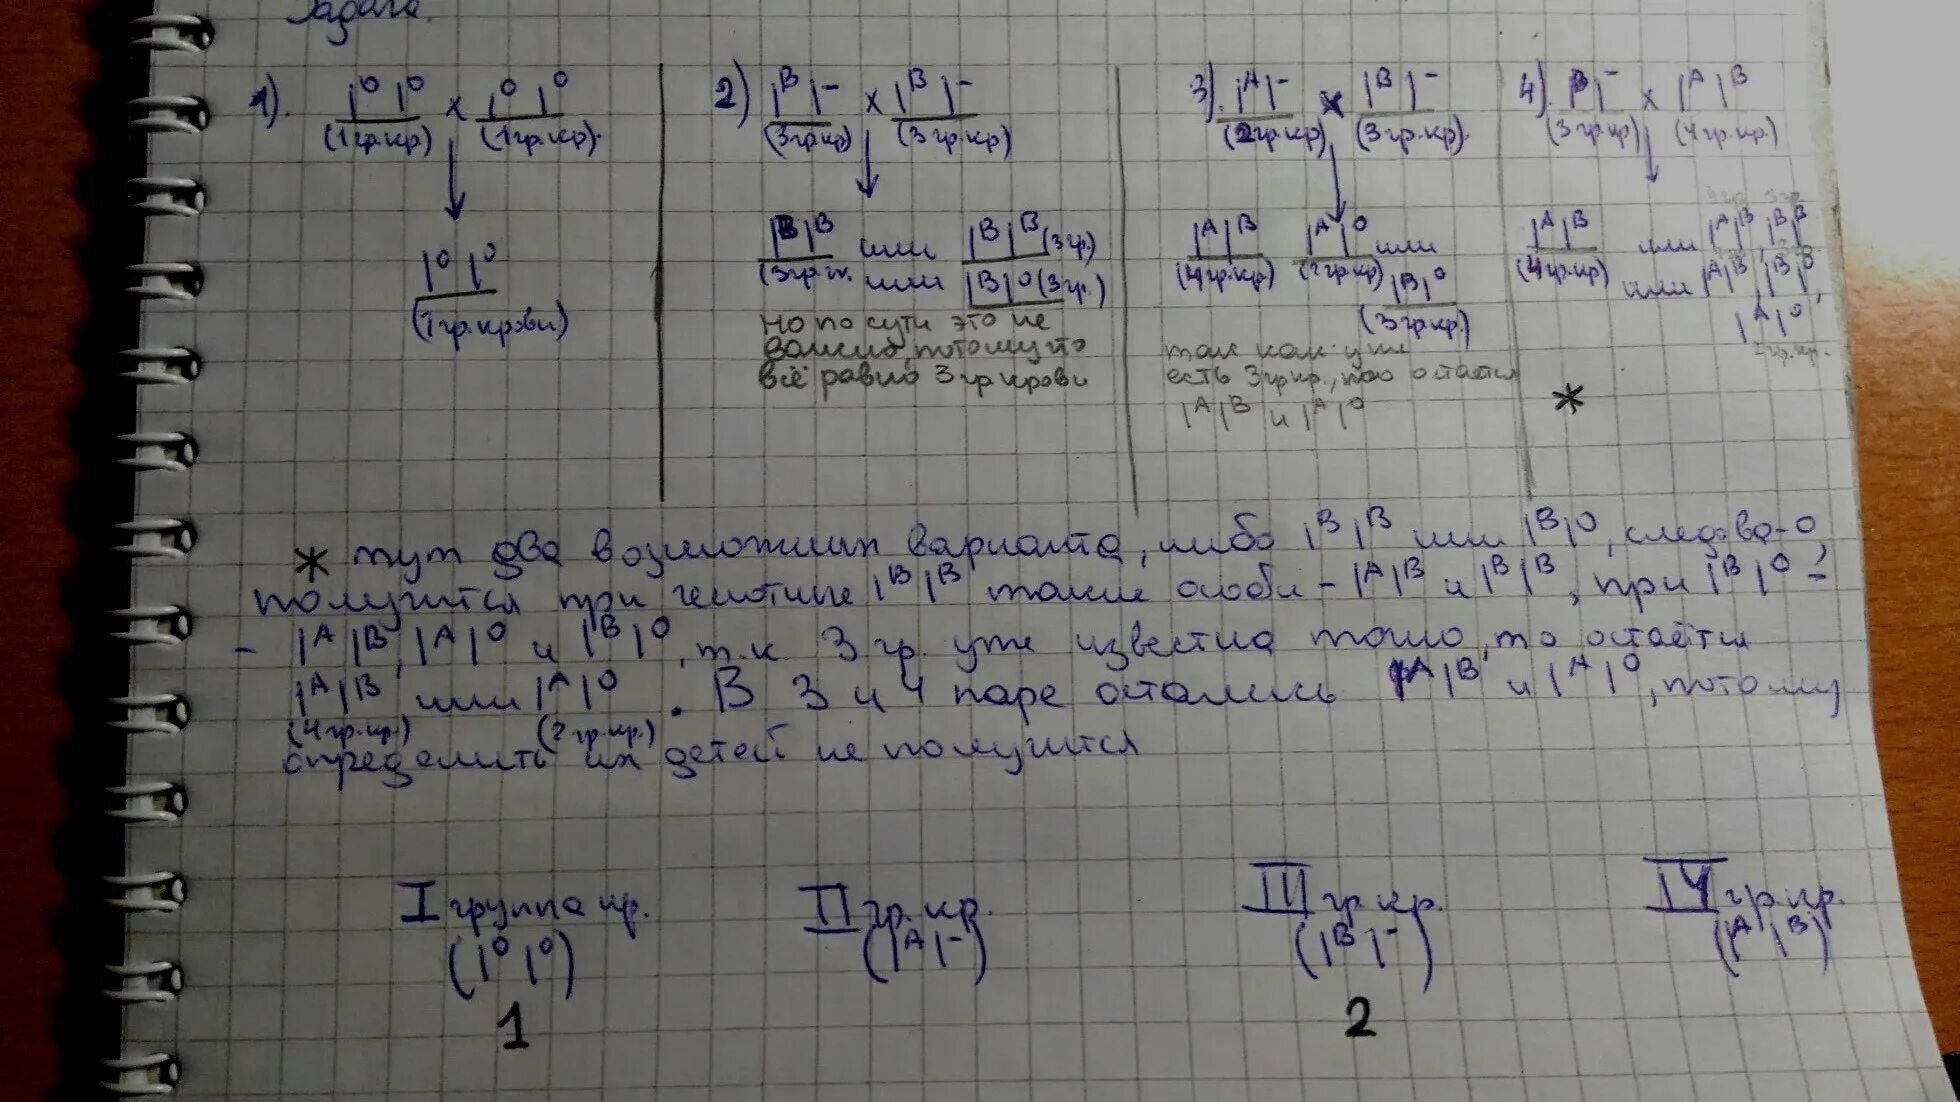 Задача.
1). I⁰I⁰ x I⁰I⁰
(1гр.кр) (1гр.кр).
I⁰I⁰
(1гр.крови)
2) Iᴮ I⁻ x Iᴮ I⁻
(3гр.кр) (3гр.кр)
IᴮIᴮ или IᴮIᴮ (3гр.)
(3гр.к. или IᴮI⁰ (3гр.)
но по сути это не
важно, потому что
всё равно 3 гр крови
3). Iᴬ I⁻ x Iᴮ I⁻
(2гр.кр) (3гр.кр).
IᴬIᴮ IᴬI⁰ или
(4гр.кр) (2гр.кр) IᴮI⁰
(3гр.кр.)
так как уже
есть 3гр.кр., то остаётся
IᴬIᴮ и IᴬI⁰
4). Iᴮ I⁻ x IᴬIᴮ
(3гр.кр) (4гр.кр)
IᴬIᴮ или IᴬIᴮ, IᴮIᴮ
(4гр.кр) или IᴬIᴮ, IᴮI⁰,
IᴬI⁰
2гр.кр.
*
* тут два возможных варианта, либо IᴮIᴮ или IᴮI⁰, следова-о,
получится при генотипе IᴮIᴮ такие особи - IᴬIᴮ и IᴮIᴮ, при IᴮI⁰ -
- IᴬIᴮ, IᴬI⁰ и IᴮI⁰, т.к. 3 гр. уже известна точно, то остаётся
IᴬIᴮ или IᴬI⁰. В 3 и 4 паре остались IᴬIᴮ и IᴬI⁰, потому
(4гр.кр.) (2гр.кр.)
определить их детей не получится
I группа кр. II гр.кр. III гр.кр. IV гр.кр.
(I⁰I⁰) (IᴬI⁻) (IᴮI⁻) (IᴬIᴮ)
1 2